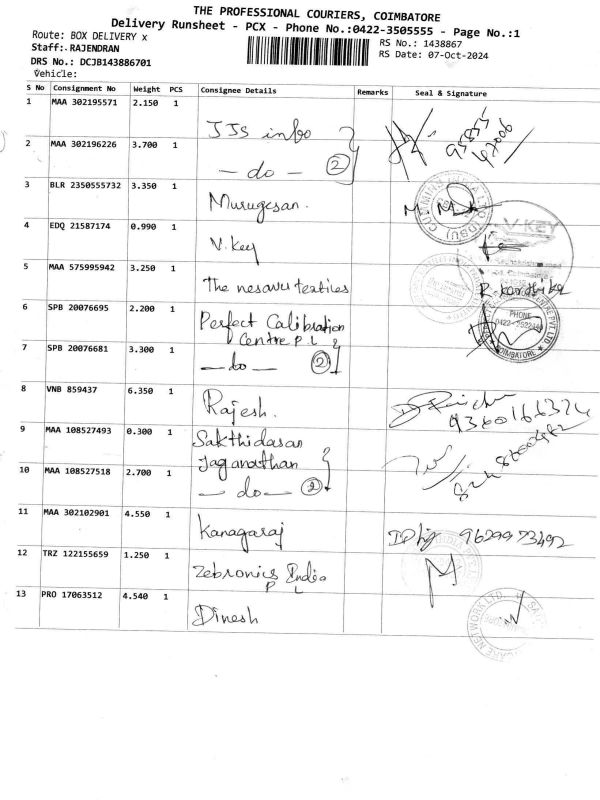 THE PROFESSIONAL COURIERS, COIMBATORE
Delivery Runsheet - PCX - Phone No.:0422-3505555 - Page No.:1
Route: BOX DELIVERY x
RS No.: 1438867
Staff: RAJENDRAN
RS Date: 07-Oct-2024
DRS No.: DCJB143886701
Vehicle:
S No Consignment No Weight PCS Consignee Details Remarks Seal & Signature
1 MAA 302195571 2.150 1 JJS info
2 MAA 302196226 3.700 1 — do — 2
3 BLR 2350555732 3.350 1 Murugesan.
4 EDQ 21587174 0.990 1 V. Key V-KEY
5 MAA 575995942 3.250 1 The nesavu textiles R. Karthika
6 SPB 20076695 2.200 1 Perfect Calibration
Centre P. L
PHONE
COIMBATORE
7 SPB 20076681 3.300 1 — do — 2
8 VNB 859437 6.350 1 Rajesh.
9 MAA 108527493 0.300 1 Sakthidasan
Jaganathan
10 MAA 108527518 2.700 1 — do — 2
11 MAA 302102901 4.550 1 Kanagaraj 9629973492
12 TRZ 122155659 1.250 1 Zebronics India
P L
13 PRO 17063512 4.540 1 Dinesh